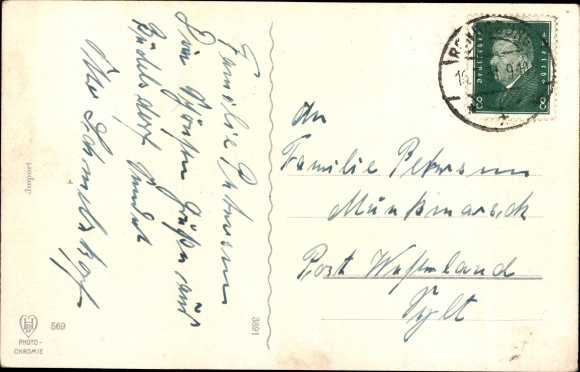 Familie Petersen
Die schönsten Grüße aus
Büdelsdorf sendet
Import
PHOTO-
CHROMIE
569
3891
Deutsches Reich
8 8
An
Familie Petersen
Münkmarsch
Post Westerland
Sylt